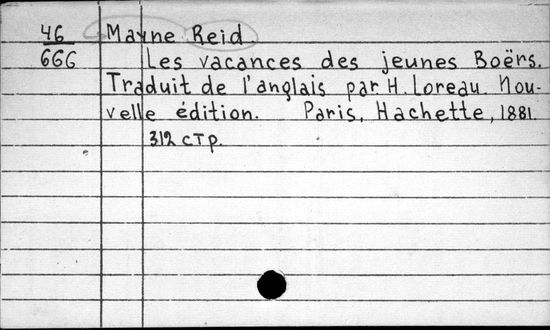 46 Mayne Reid
666 Les vacances des jeunes Boërs.
Traduit de l'anglais par H. Loreau. Nou-
velle édition. Paris, Hachette, 1881.
312 стр.